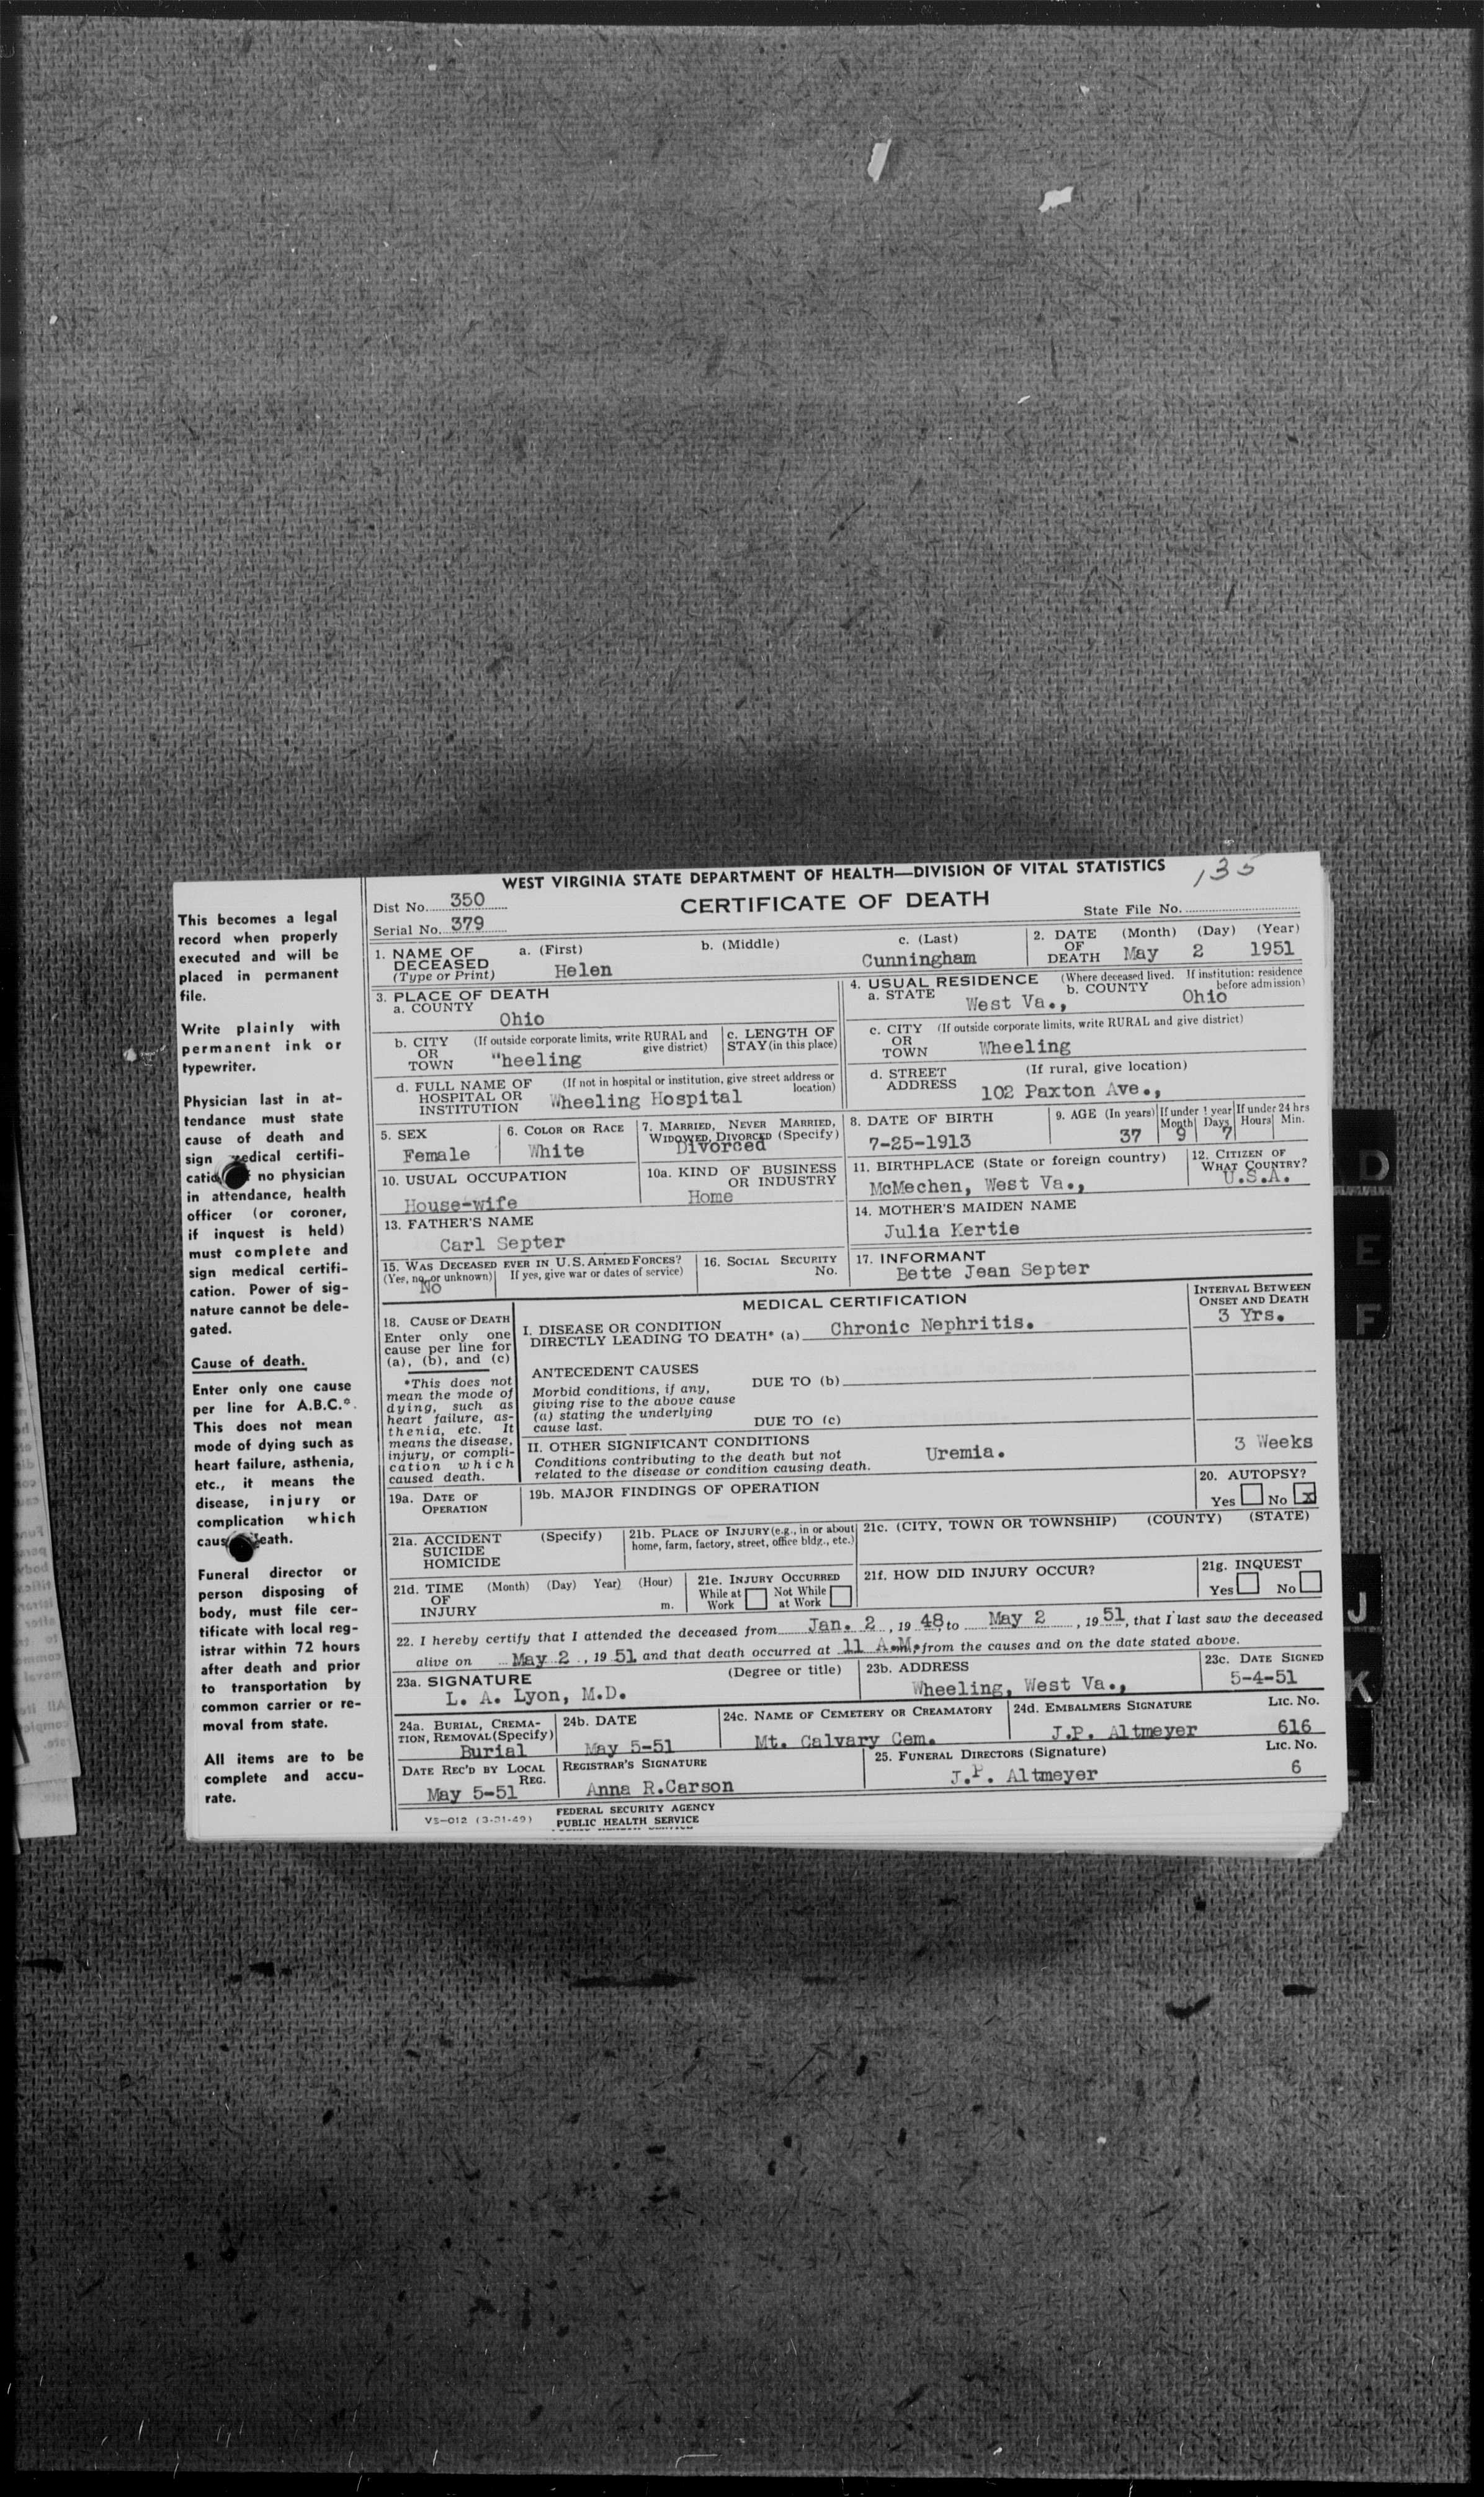 WEST VIRGINIA STATE DEPARTMENT OF HEALTH—DIVISION OF VITAL STATISTICS
135
Dist No. 350
CERTIFICATE OF DEATH
State File No.
Serial No. 379
This becomes a legal
record when properly
executed and will be
placed in permanent
file.
Write plainly with
permanent ink or
typewriter.
Physician last in at-
tendance must state
cause of death and
sign medical certifi-
no physician
in attendance, health
officer (or coroner,
if inquest is held)
must complete and
sign medical certifi-
cation. Power of sig-
nature cannot be dele-
gated.
Cause of death.
Enter only one cause
per line for A.B.C.*.
This does not mean
mode of dying such as
heart failure, asthenia,
etc., it means the
disease, injury or
complication which
Funeral director or
person disposing of
body, must file cer-
tificate with local reg-
istrar within 72 hours
after death and prior
to transportation by
common carrier or re-
moval from state.
All items are to be
complete and accu-
rate.
1. NAME OF DECEASED (Type or Print)
a. (First) Helen
b. (Middle)
c. (Last) Cunningham
2. DATE OF DEATH (Month) (Day) (Year) May 2 1951
3. PLACE OF DEATH
a. COUNTY Ohio
b. CITY OR TOWN (If outside corporate limits, write RURAL and give district) "heeling
c. LENGTH OF STAY (in this place)
d. FULL NAME OF HOSPITAL OR INSTITUTION (If not in hospital or institution, give street address or location) Wheeling Hospital
4. USUAL RESIDENCE (Where deceased lived. If institution: residence before admission)
a. STATE West Va.,
b. COUNTY Ohio
c. CITY OR TOWN (If outside corporate limits, write RURAL and give district) Wheeling
d. STREET ADDRESS (If rural, give location) 102 Paxton Ave.,
5. SEX Female
6. COLOR OR RACE White
7. MARRIED, NEVER MARRIED, WIDOWED, DIVORCED (Specify) Divorced
8. DATE OF BIRTH 7-25-1913
9. AGE (In years) 37
If under 1 year Month 9 Days 7
If under 24 hrs Hours Min.
10. USUAL OCCUPATION House-wife
10a. KIND OF BUSINESS OR INDUSTRY Home
11. BIRTHPLACE (State or foreign country) McMechen, West Va.,
12. CITIZEN OF WHAT COUNTRY? U.S.A.
13. FATHER'S NAME Carl Septer
14. MOTHER'S MAIDEN NAME Julia Kertie
15. WAS DECEASED EVER IN U.S. ARMED FORCES? (Yes, no, or unknown) No
If yes, give war or dates of service)
16. SOCIAL SECURITY No.
17. INFORMANT Bette Jean Septer
MEDICAL CERTIFICATION
INTERVAL BETWEEN ONSET AND DEATH
18. CAUSE OF DEATH
Enter only one
cause per line for
(a), (b), and (c)
*This does not
mean the mode of
dying, such as
heart failure, as-
thenia, etc. It
means the disease,
injury, or compli-
cation which
caused death.
I. DISEASE OR CONDITION
DIRECTLY LEADING TO DEATH* (a) Chronic Nephritis. 3 Yrs.
ANTECEDENT CAUSES
Morbid conditions, if any,
giving rise to the above cause
(a) stating the underlying
cause last.
DUE TO (b)
DUE TO (c)
II. OTHER SIGNIFICANT CONDITIONS
Conditions contributing to the death but not
related to the disease or condition causing death. Uremia. 3 Weeks
19a. DATE OF OPERATION
19b. MAJOR FINDINGS OF OPERATION
20. AUTOPSY?
Yes No x
21a. ACCIDENT SUICIDE HOMICIDE (Specify)
21b. PLACE OF INJURY (e.g., in or about home, farm, factory, street, office bldg., etc.)
21c. (CITY, TOWN OR TOWNSHIP) (COUNTY) (STATE)
21d. TIME OF INJURY (Month) (Day) Year) (Hour) m.
21e. INJURY OCCURRED While at Work Not While at Work
21f. HOW DID INJURY OCCUR?
21g. INQUEST Yes No
22. I hereby certify that I attended the deceased from Jan. 2, 19 48, to May 2, 19 51, that I last saw the deceased
alive on May 2, 19 51 and that death occurred at 11 A.M., from the causes and on the date stated above.
23a. SIGNATURE (Degree or title) L. A. Lyon, M.D.
23b. ADDRESS Wheeling, West Va.,
23c. DATE SIGNED 5-4-51
24a. BURIAL, CREMA-TION, REMOVAL (Specify) Burial
24b. DATE May 5-51
24c. NAME OF CEMETERY OR CREAMATORY Mt. Calvary Cem.
24d. EMBALMERS SIGNATURE J.P. Altmeyer
LIC. NO. 616
DATE REC'D BY LOCAL REG. May 5-51
REGISTRAR'S SIGNATURE Anna R.Carson
25. FUNERAL DIRECTORS (Signature) J.P. Altmeyer
LIC. NO. 6
VS—012 (3-31-49)
FEDERAL SECURITY AGENCY
PUBLIC HEALTH SERVICE
D
E
F
J
K